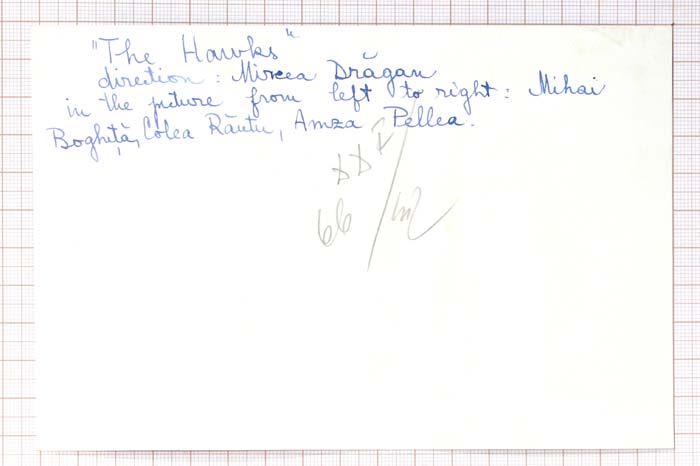 "The Hawks"
direction: Mircea Drăgan
in the picture from left to right: Mihai
Boghiță, Colea Răutu, Amza Pellea.
66